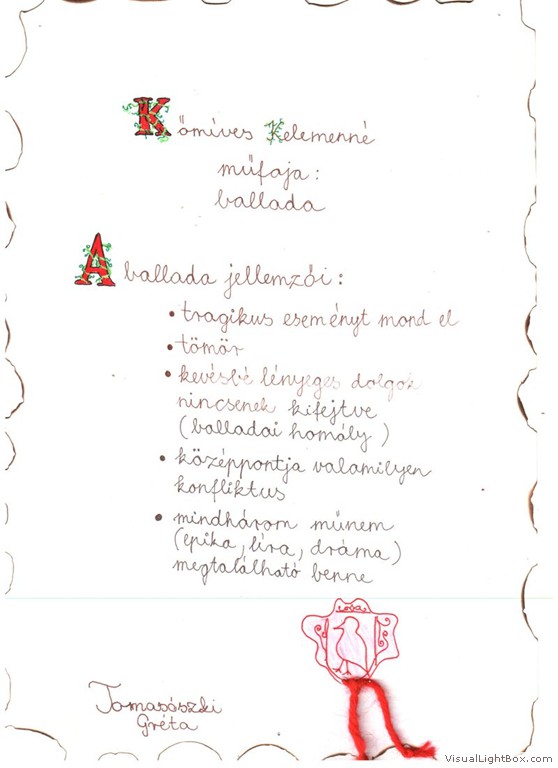 Kőmíves Kelemenné
műfaja:
ballada
A ballada jellemzői:
• tragikus eseményt mond el
• tömör
• kevésbé lényeges dolgok
nincsenek kifejtve
(balladai homály)
• középpontja valamilyen
konfliktus
• mindhárom műnem
(epika, líra, dráma)
megtalálható benne
Tomasószki
Gréta
VisualLightBox.com